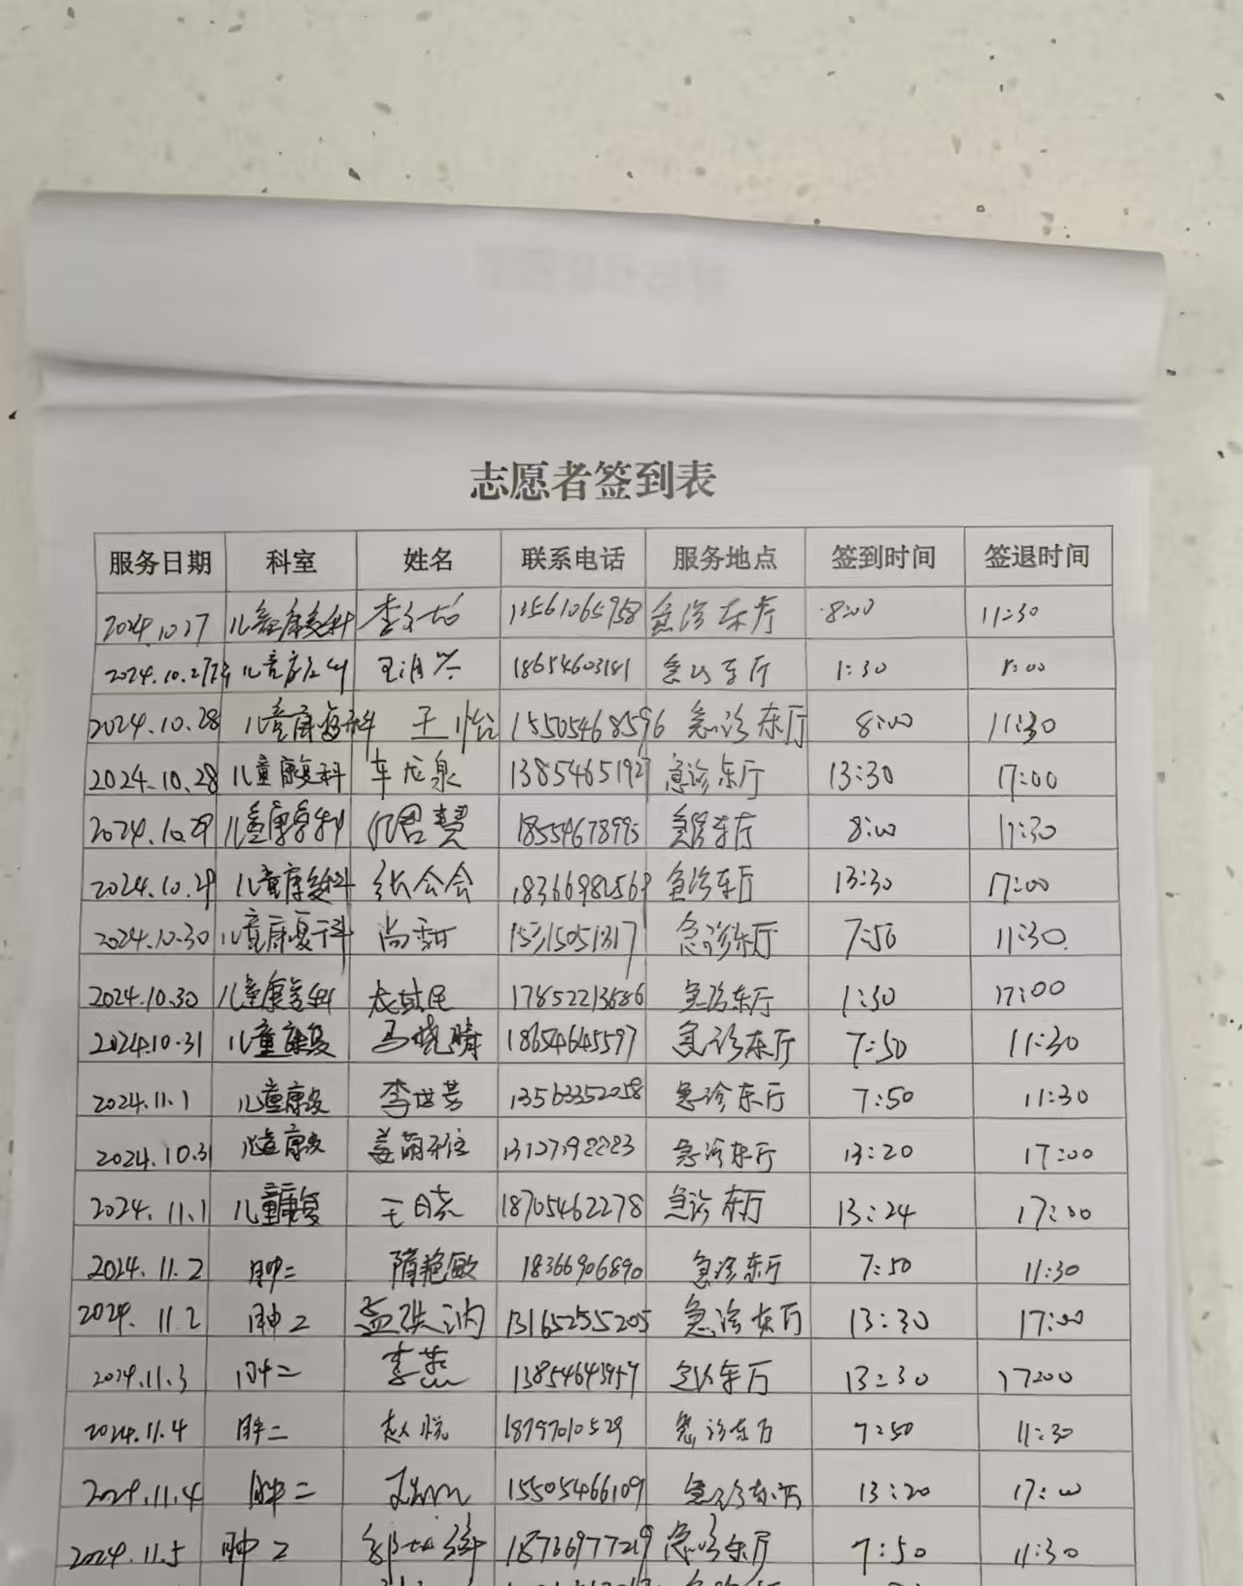 志愿者签到表
服务日期 科室 姓名 联系电话 服务地点 签到时间 签退时间
2024.10.27 儿童康复科 李 13561065958 急诊东厅 8:00 11:30
2024.10.27 儿童康复科 18654603181 急诊东厅 1:30
2024.10.28 儿童康复科 王怡 15505468596 急诊东厅 8:00 11:30
2024.10.28 儿童康复科 车龙泉 1385465192 急诊东厅 13:30 17:00
2024.10.29 儿童康复科 18554678995 急诊东厅 8:00 11:30
2024.10.29 儿童康复科 张会会 急诊东厅 13:30 17:00
2024.10.30 儿童康复科 尚 急诊东厅 7:50 11:30
2024.10.30 儿童康复科 17852213686 急诊东厅 1:30 17:00
2024.10.31 儿童康复 马晓晴 18654645597 急诊东厅 7:50 11:30
2024.11.1 儿童康复 李世芳 13563352058 急诊东厅 7:50 11:30
2024.10.31 儿童康复 急诊东厅 13:20 17:00
2024.11.1 儿童康复 王晓 18705462278 急诊东厅 13:24 17:00
2024.11.2 肿二 隋艳敏 18366906890 急诊东厅 7:50 11:30
2024.11.2 肿2 孟 13165255205 急诊东厅 13:30 17:00
2024.11.3 肿二 李燕 急诊东厅 13:30 17:00
2024.11.4 肿二 赵悦 18797010529 急诊东厅 7:50 11:30
2024.11.4 肿二 15505466109 急诊东厅 13:20 17:00
2024.11.5 肿2 18736977219 急诊东厅 7:50 11:30